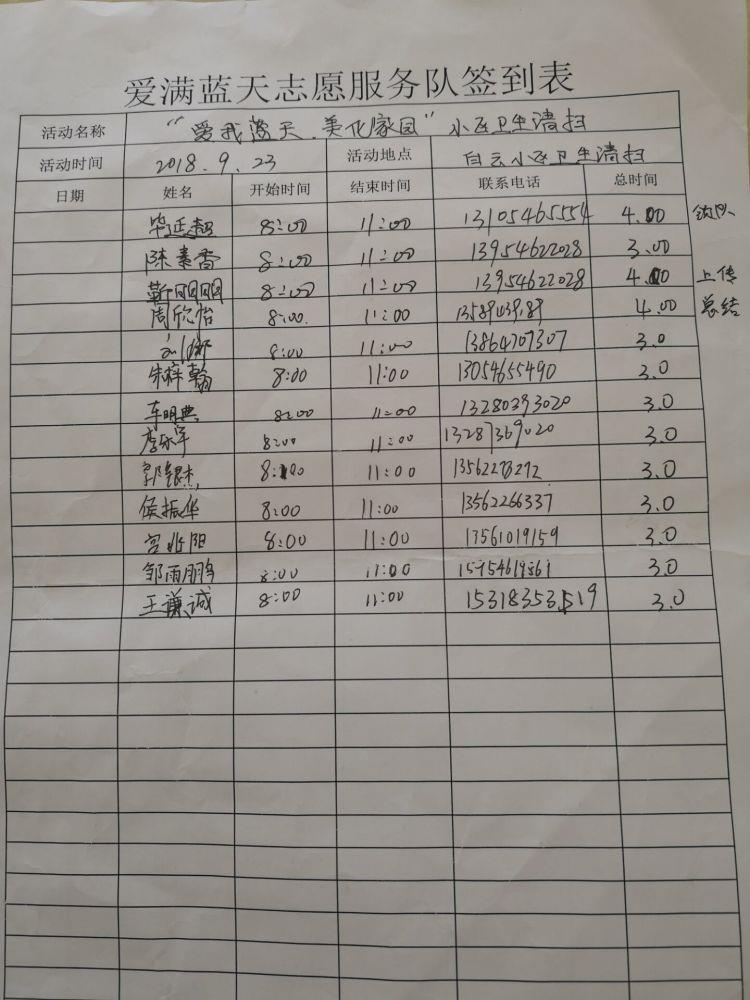 爱满蓝天志愿服务队签到表
活动名称 "爱我蓝天.美化家园" 小区卫生清扫
活动时间 2018.9.23 活动地点 白云小区卫生清扫
日期 姓名 开始时间 结束时间 联系电话 总时间
毕延超 8:00 11:00 13105465554 4.00
陈素香 8:00 11:00 13954622028 3.00
靳丽丽 8:00 11:00 13954622028 4.00 上传
周欣怡 8:00. 11:00 4.00 总结
8:00 11:00 13864707307 3.0
朱梓翰 8:00 11:00 13054655490 3.0
车明典 8:00 11:00 13280393020 3.0
李永军 8:00 11:00 13287369020 3.0
郭银杰 8:00 11:00 3.0
侯振华 8:00 11:00 13562266337 3.0
宫兆阳 8:00 11:00 13561019159 3.0
邹雨鹏 8:00 11:00 3.0
王谦诚 8:00 11:00 15318353519 3.0